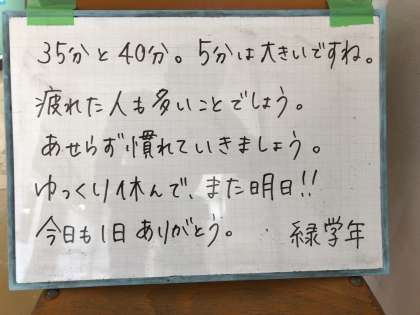 35分と40分。5分は大きいですね。
疲れた人も多いことでしょう。
あせらず慣れていきましょう。
ゆっくり休んで、また明日!!
今日も1日ありがとう。 緑学年